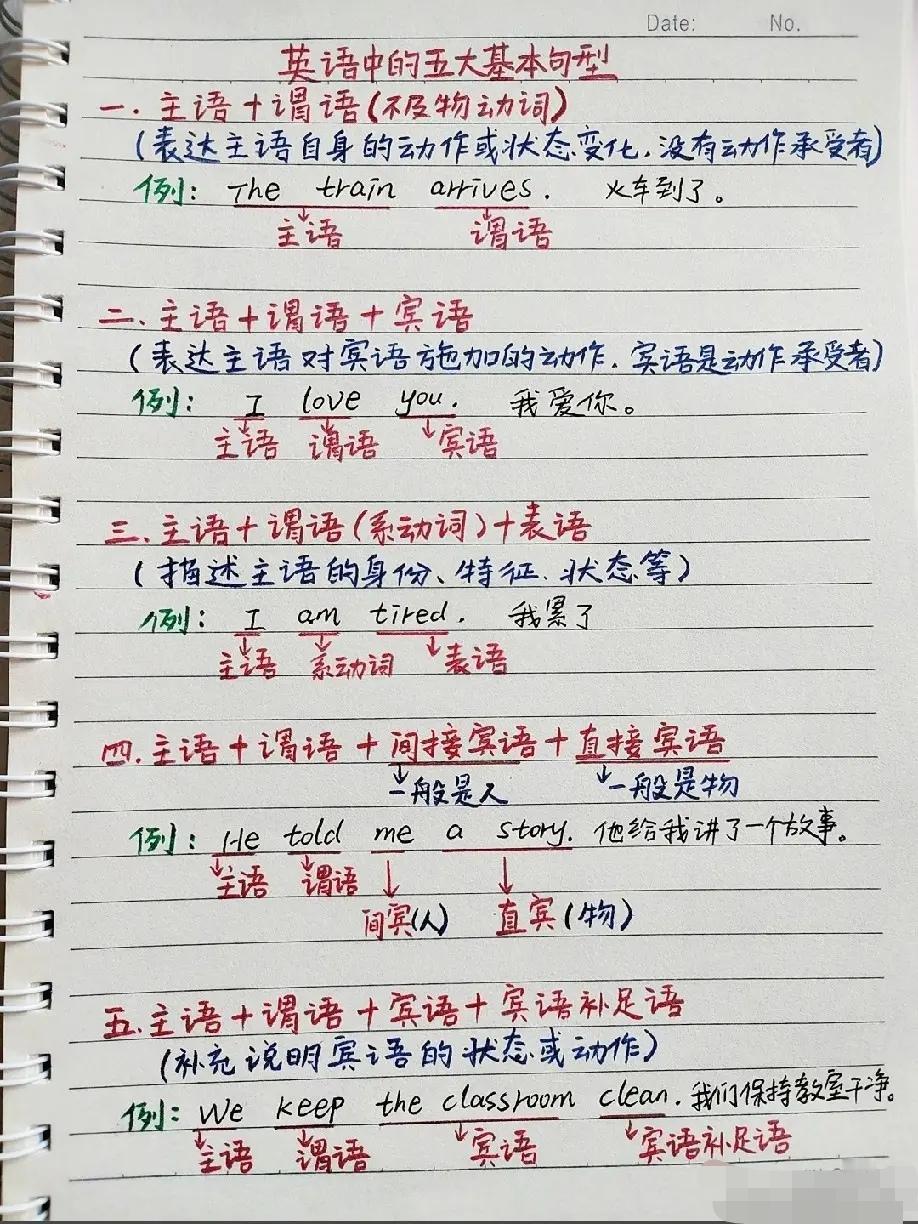 Date: No.
英语中的五大基本句型
一.主语+谓语(不及物动词)
(表达主语自身的动作或状态变化.没有动作承受者)
例: The train arrives. 火车到了。
主语 谓语
二.主语+谓语+宾语
(表达主语对宾语施加的动作.宾语是动作承受者)
例: I love you. 我爱你。
主语 谓语 宾语
三.主语+谓语(系动词)+表语
(描述主语的身份、特征.状态等)
例: I am tired. 我累了
主语 系动词 表语
四.主语+谓语+间接宾语+直接宾语
一般是人 一般是物
例: He told me a story. 他给我讲了一个故事。
主语 谓语
间宾(人) 直宾(物)
五.主语+谓语+宾语+宾语补足语
(补充说明宾语的状态或动作)
例: We keep the classroom clean. 我们保持教室干净。
主语 谓语 宾语 宾语补足语